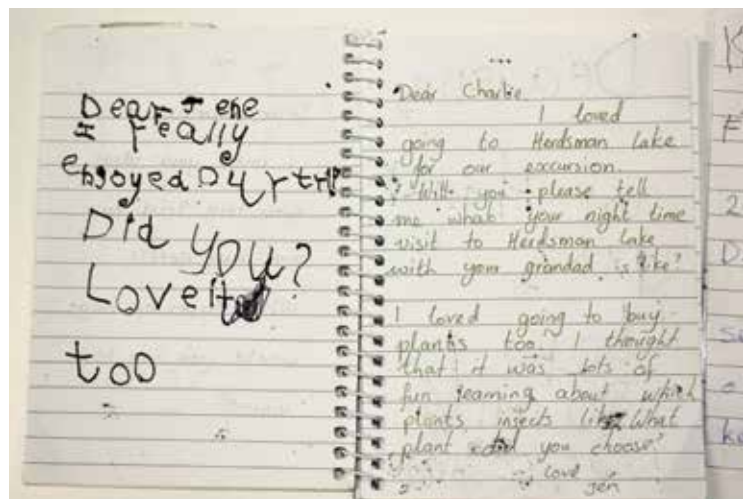 Dear Jene
I really
enjoyed Our trip
Did you?
Love it
too
Dear Charlie
I loved
going to Herdsman Lake
for our excursion.
? Will you please tell
me what your night time
visit to Herdsman Lake
with your grandad is like?
I loved going to buy
plants too. I thought
that it was lots of
fun learning about which
plants insects like. What
plant did you choose?
love
Jen